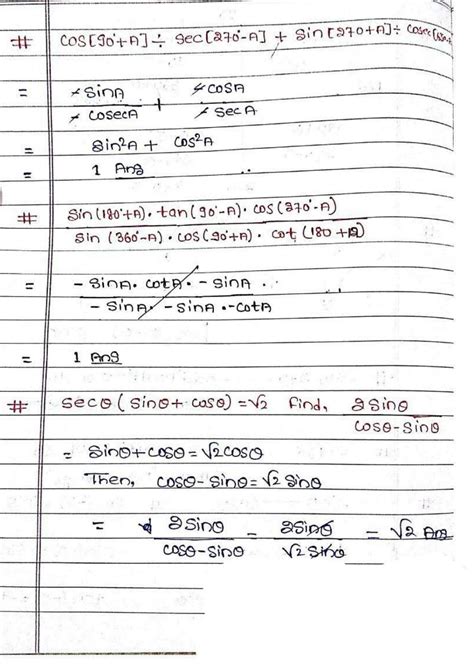 # cos[90°+A] ÷ sec[270°-A] + sin[270+A] ÷ cosec
= -sinA / -cosecA + -cosA / -secA
= sin²A + cos²A
= 1 Ans
# sin(180°+A)·tan(90°-A)·cos(270°-A) / sin(360°-A)·cos(90°+A)·cot(180+A)
= -sinA·cotA·-sinA / -sinA·-sinA·-cotA
= 1 Ans
# secθ(sinθ+cosθ)=√2 find, 2sinθ / cosθ-sinθ
= sinθ+cosθ=√2cosθ
Then, cosθ-sinθ=√2 sinθ
= 2sinθ / cosθ-sinθ = 2sinθ / √2 sinθ = √2 Ans